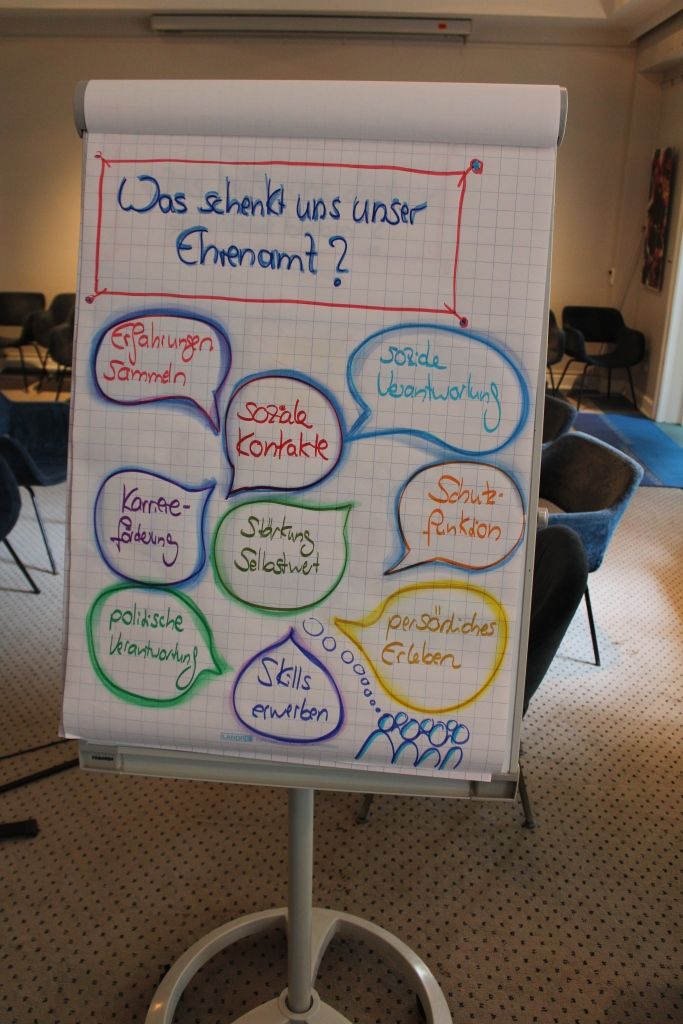 Was schenkt uns unser
Ehrenamt?
Erfahrungen
sammeln
soziale
Verantwortung
soziale
Kontakte
Karriere-
förderung
Stärkung
Selbstwert
Schutz-
funktion
politische
Verantwortung
Skills
erwerben
persönliches
Erleben